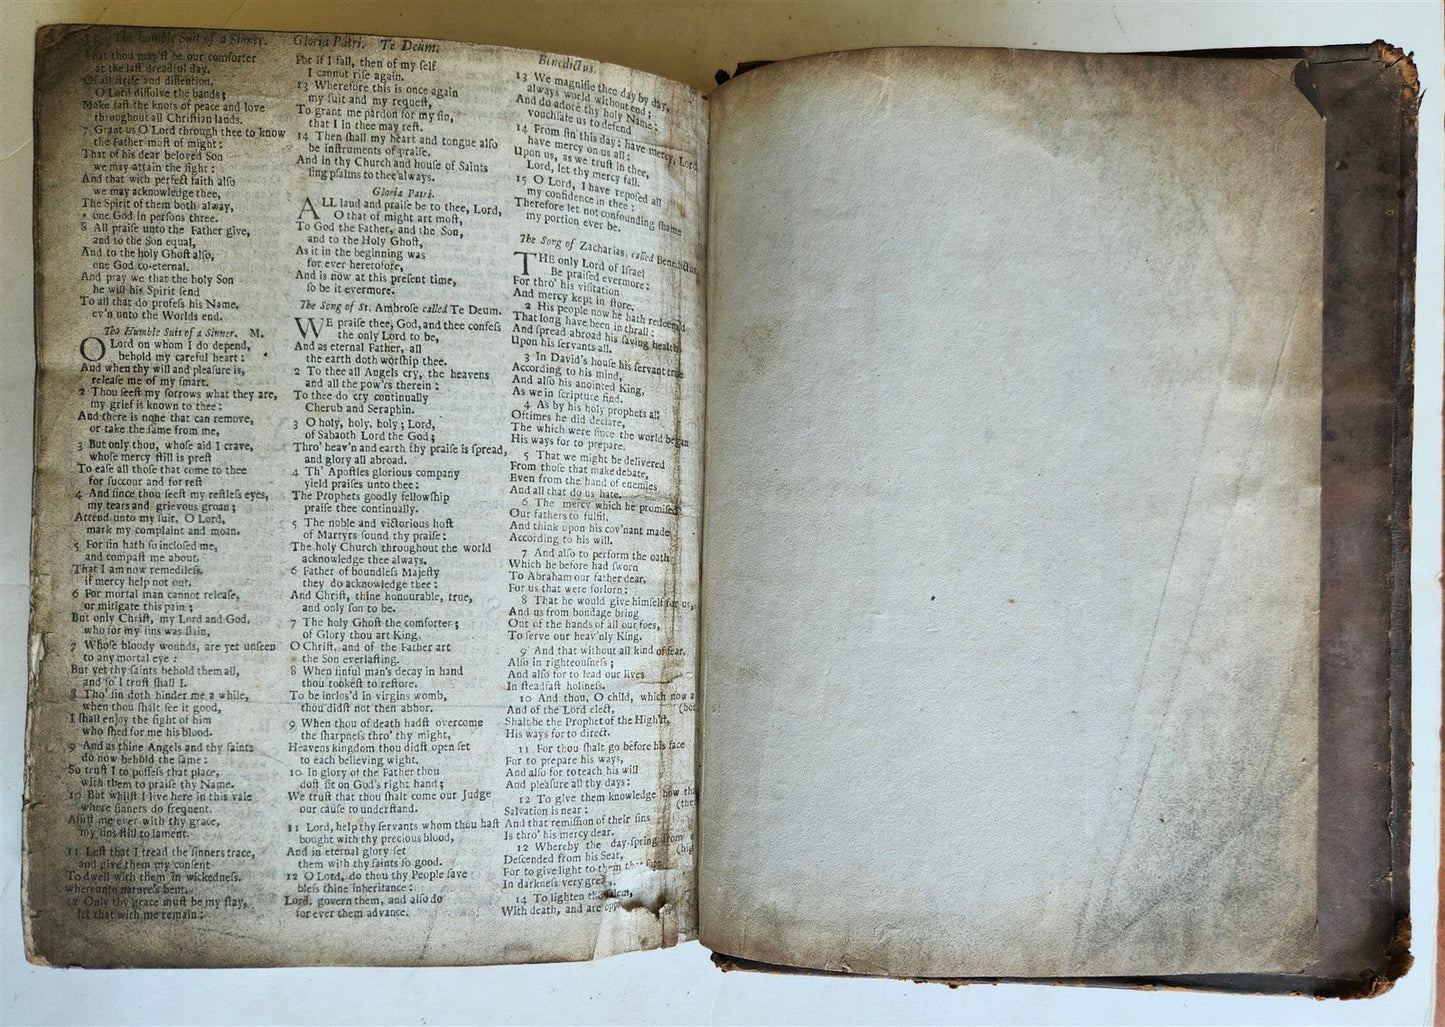 The Humble Suit of a Sinner. Gloria Patri. Te Deum.
That thou may'ſt be our comforter
at the laſt dreadful day.
Of all ſtrife and diſſention,
O Lord diſſolve the bands;
Make faſt the knots of peace and love
throughout all Chriſtian lands.
7 Grant us O Lord through thee to know
the Father moſt of might:
That of his dear beloved Son
we may attain the ſight:
And that with perfect faith alſo
we may acknowledge thee,
The Spirit of them both alway,
one God in perſons three.
8 All praiſe unto the Father give,
and to the Son equal,
And to the holy Ghoſt alſo,
one God co-eternal.
And pray we that the holy Son
he will his Spirit ſend
To all that do profeſs his Name,
ev'n unto the Worlds end.
The Humble Suit of a Sinner. M.
O Lord on whom I do depend,
behold my careful heart:
And when thy will and pleaſure is,
releaſe me of my ſmart.
2 Thou ſeeſt my ſorrows what they are,
my grief is known to thee:
And there is none that can remove,
or take the ſame from me,
3 But only thou, whoſe aid I crave,
whoſe mercy ſtill is preſt
To eaſe all thoſe that come to thee
for ſuccour and for reſt
4 And ſince thou ſeeſt my reſtleſs eyes,
my tears and grievous groan;
Attend unto my ſuit, O Lord,
mark my complaint and moan.
5 For ſin hath ſo incloſed me,
and compaſt me about,
That I am now remedileſs,
if mercy help not out.
6 For mortal man cannot releaſe,
or mitigate this pain;
But only Chriſt, my Lord and God,
who for my ſins was ſlain,
7 Whoſe bloody wounds, are yet unſeen
to any mortal eye:
But yet thy ſaints behold them all,
and ſo I truſt ſhall I.
8 Tho' ſin doth hinder me a while,
when thou ſhalt ſee it good,
I ſhall enjoy the ſight of him
who ſhed for me his blood.
9 And as thine Angels and thy ſaints
do now behold the ſame:
So truſt I to poſſeſs that place,
with them to praiſe thy Name.
10 But whilſt I live here in this vale
where ſinners do frequent,
Aſſiſt me ever with thy grace,
my ſins ſtill to lament.
11 Left that I tread the ſinners trace,
and give them my conſent
To dwell with them in wickedneſs.
whereunto nature's bent.
12 Only thy grace muſt be my ſtay,
let that with me remain:
For if I fall, then of my ſelf
I cannot riſe again.
13 Wherefore this is once again
my ſuit and my requeſt,
To grant me pardon for my ſin,
that I in thee may reſt.
14 Then ſhall my heart and tongue alſo
be inſtruments of praiſe,
And in thy Church and houſe of Saints
ſing pſalms to thee always.
Gloria Patri.
ALL laud and praiſe be to thee, Lord,
O that of might art moſt,
To God the Father, and the Son,
and to the Holy Ghoſt,
As it in the beginning was
for ever heretofore,
And is now at this preſent time,
ſo be it evermore.
The Song of St. Ambroſe called Te Deum.
WE praiſe thee, God, and thee confeſs
the only Lord to be,
And as eternal Father, all
the earth doth worſhip thee.
2 To thee all Angels cry, the heavens
and all the pow'rs therein:
To thee do cry continually
Cherub and Seraphin.
3 O holy, holy, holy; Lord,
of Sabaoth Lord the God;
Thro' heav'n and earth thy praiſe is ſpread,
and glory all abroad.
4 Th' Apoſtles glorious company
yield praiſes unto thee:
The Prophets goodly fellowſhip
praiſe thee continually.
5 The noble and victorious hoſt
of Martyrs ſound thy praiſe:
The holy Church throughout the world
acknowledge thee always.
6 Father of boundleſs Majeſty
they do acknowledge thee:
And Chriſt, thine honourable, true,
and only ſon to be.
7 The holy Ghoſt the comforter;
of Glory thou art King.
O Chriſt, and of the Father art
the Son everlaſting.
8 When ſinful man's decay in hand
thou tookeſt to reſtore.
To be inclos'd in virgins womb,
thou didſt not then abhor.
9 When thou of death hadſt overcome
the ſharpneſs thro' thy might,
Heavens kingdom thou didſt open ſet
to each believing wight.
10 In glory of the Father thou
doſt ſit on God's right hand;
We truſt that thou ſhalt come our Judge
our cauſe to underſtand.
11 Lord, help thy ſervants whom thou haſt
bought with thy precious blood,
And in eternal glory ſet
them with thy ſaints ſo good.
12 O Lord, do thou thy People ſave
bleſs thine inheritance:
Lord, govern them, and alſo do
for ever them advance.
Benedictus.
13 We magnifie thee day by day,
always world without end;
And do adore thy holy Name:
vouchſafe us to defend
14 From ſin this day: have mercy, Lord
have mercy on us all:
Upon us, as we truſt in thee,
Lord, let thy mercy fall.
15 O Lord, I have repoſed all
my confidence in thee:
Therefore let not confounding ſhame
my portion ever be.
The Song of Zacharias, called Benedictus.
THE only Lord of Iſrael
Be praiſed evermore:
For thro' his viſitation
And mercy kept in ſtore,
2 His people now he hath redeem'd
That long have been in thrall:
And ſpread abroad his ſaving health
Upon his ſervants all.
3 In David's houſe his ſervant true
According to his mind,
And alſo his anointed King,
As we in ſcripture find.
4 As by his holy prophets all
Oftimes he did declare,
The which were ſince the world began
His ways for to prepare.
5 That we might be delivered
From thoſe that make debate,
Even from the hand of enemies
And all that do us hate.
6 The mercy which he promiſed
Our fathers to fulfil,
And think upon his cov'nant made
According to his will.
7 And alſo to perform the oath
Which he before had ſworn
To Abraham our father dear,
For us that were forlorn:
8 That he would give himſelf for us,
And us from bondage bring
Out of the hands of all our foes,
To ſerve our heav'nly King.
9 And that without all kind of fear,
Alſo in righteouſneſs;
And alſo for to lead our lives
In ſteadfaſt holineſs.
10 And thou, O child, which now a
And of the Lord elect, (bor
Shalt be the Prophet of the High'ſt,
His ways for to direct.
11 For thou ſhalt go before his face
For to prepare his ways,
And alſo for to teach his will
And pleaſure all thy days:
12 To give them knowledge how tha
Salvation is near: (the
And that remiſſion of their ſins
Is thro' his mercy dear.
12 Whereby the day-ſpring from
Deſcended from his Seat, (hig
For to give light to them that ſate
In darkneſs very
14 To lighten
With death, and are